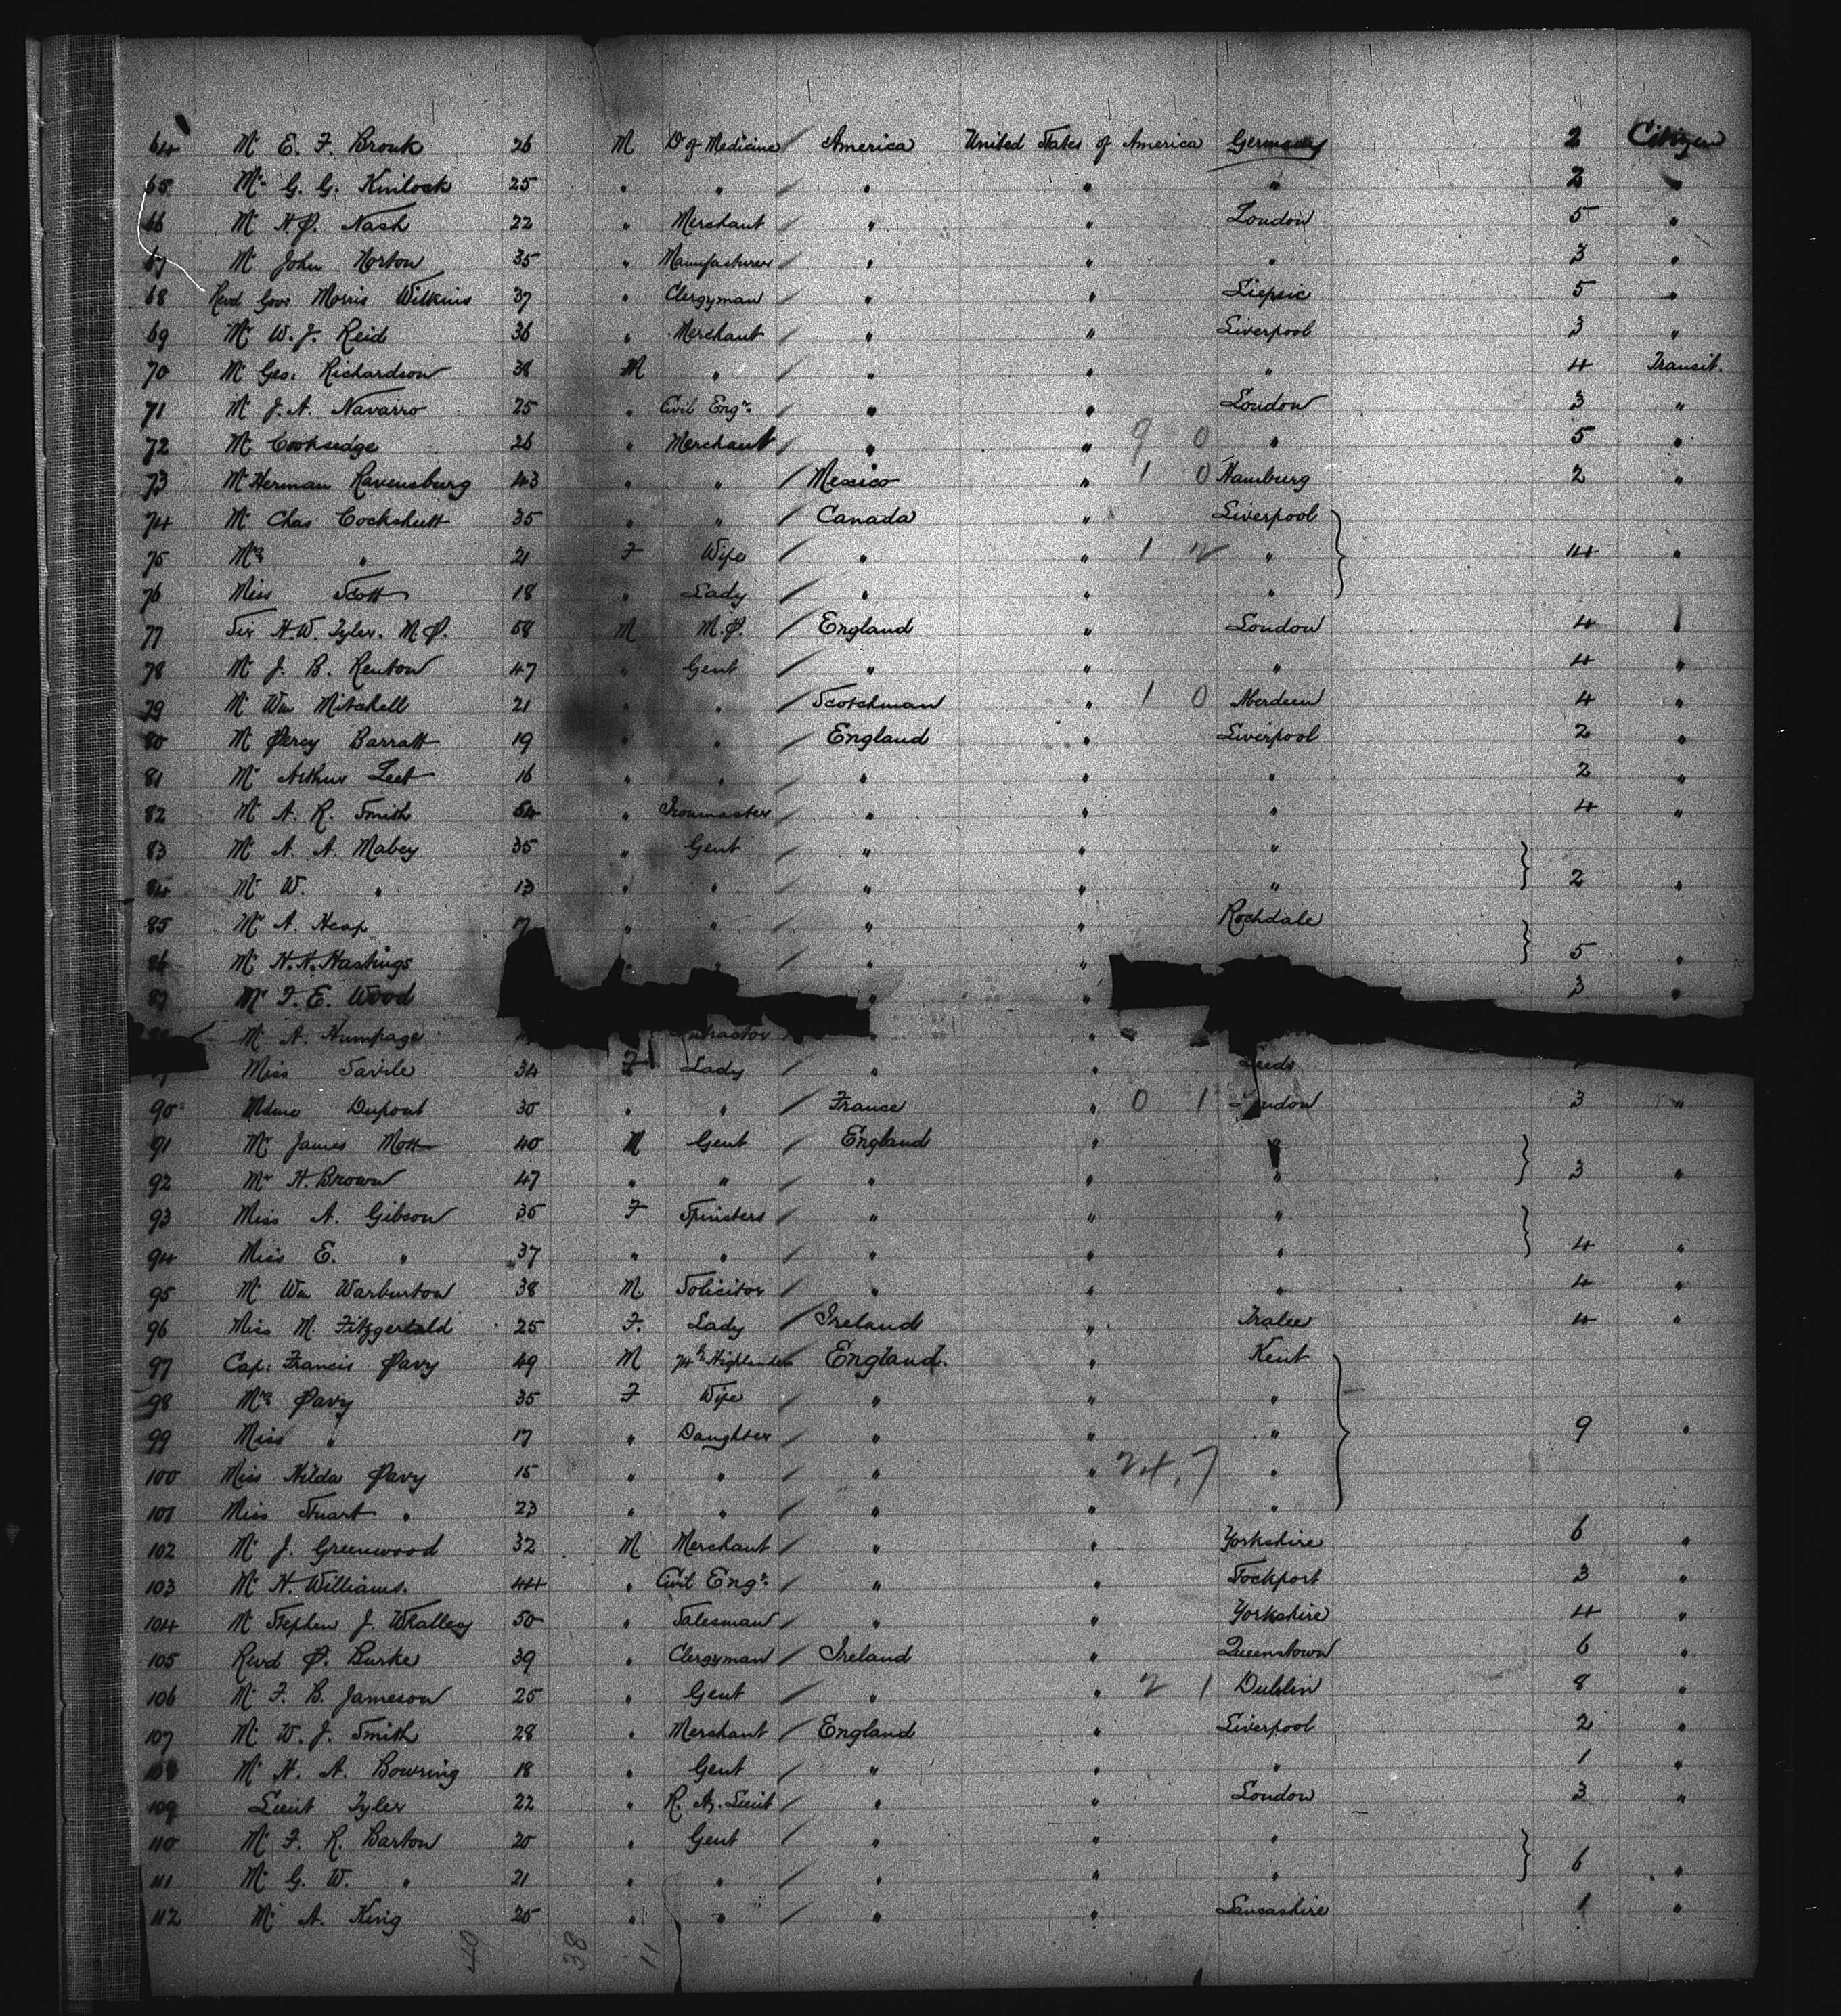 64 Mr E. F. Brouk 26 M Dr of Medicine America United States of America Germany 2 Citizen
65 Mr G. G. Kinlock 25 " " " " " 2 "
66 Mr H. P. Nash 22 " Merchant " " London 5 "
67 Mr John Horton 35 " Manufacturer " " " 3 "
68 Revd Gove Morris Wilkins 37 " Clergyman " " Liepsic 5 "
69 Mr W. J. Reid 36 " Merchant " " Liverpool 3 "
70 Mr Geo: Richardson 38 M " " " " 4 Transit.
71 Mr J. A. Navarro 25 " Civil Engr. " " London 3 "
72 Mr Cooksedge 26 " Merchant " " 9 0 " 5 "
73 Mr Herman Ravensburg 43 " " Mexico " 1 0 Hamburg 2 "
74 Mr Chas Cockshutt 35 " " Canada " Liverpool
75 Mrs " 21 F Wife " " 1 2 " 14 "
76 Miss Scott 18 " Lady " " "
77 Sir H. W. Tyler. M.P. 58 M M.P. England " London 4
78 Mr J. B. Renton 47 " Gent " " " 4 "
79 Mr Wm Mitchell 21 " " Scotchman " 1 0 Aberdeen 4 "
80 Mr Percy Barratt 19 " " England " Liverpool 2 "
81 Mr Arthur Leet 16 " " " " " 2 "
82 Mr A. R. Smith 54 " Ironmaster " " " 4 "
83 Mr A. A. Mabey 35 " Gent " " "
84 Mr W. " 13 " " " " " 2 "
85 Mr A. Heap 17 " " " " Rochdale
86 Mr H. H. Hastings " " " " 5 "
87 Mr F. E. Wood " " 3 "
Mr A. Humpage ntractor " "
Miss Savile 34 F Lady " " Leeds
90 Mdme Dupont 30 " " France " 0 1 London 3 "
91 Mr James Mott 40 M Gent England " "
92 Mr H. Brown 47 " " " " " 3 "
93 Miss A. Gibson 35 F Spinsters " " "
94 Miss E. " 37 " " " " " 4 "
95 Mr Wm Warburton 38 M Solicitor " " " 4 "
96 Miss M. Fitzgerald 25 F. Lady Ireland " Tralee 4 "
97 Cap: Francis Pavy 49 M 74th Highlanders England. " Kent
98 Mrs Pavy 35 F Wife " " "
99 Miss " 17 " Daughter " " " 9 "
100 Miss Hilda Pavy 15 " " " " 24.7 "
101 Miss Stuart " 23 " " " " "
102 Mr J. Greenwood 32 M Merchant " " Yorkshire 6 "
103 Mr H. Williams. 44 " Civil Engr. " " Stockport 3 "
104 Mr Stephen J. Whalley 50 " Salesman " " Yorkshire 4 "
105 Revd P. Burke 39 " Clergyman Ireland " Queenstown 6 "
106 Mr F. B. Jameson 25 " Gent " " 2 1 Dublin 8 "
107 Mr W. J. Smith 28 " Merchant England " Liverpool 2 "
108 Mr H. A. Bowring 18 " Gent " " " 1 "
109 Lieut Tyler 22 " R. A. Lieut " " London 3 "
110 Mr F. R. Barton 20 " Gent " " "
111 Mr G. W. " 21 " " " " " 6 "
112 Mr A. King 25 " " " " Lancashire 1 "
49 38 11